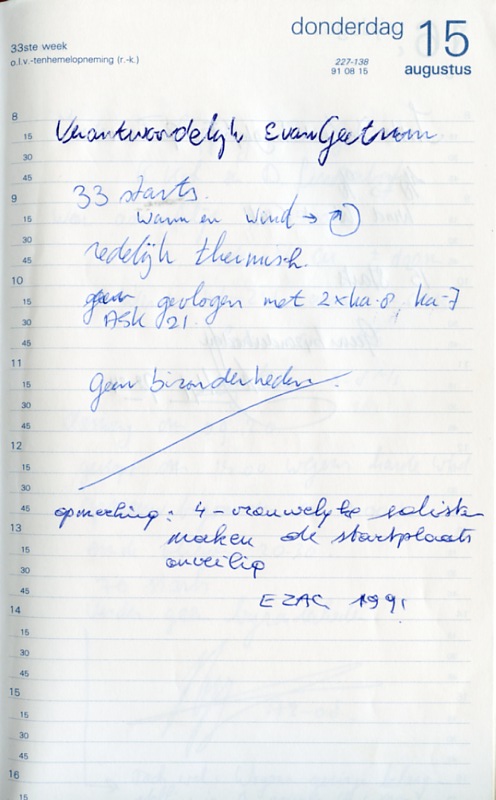 donderdag 15
33ste week
o.l.v.-tenhemelopneming (r.-k.)
227-138
91 08 15
augustus
8
15 Verantwoordelijk E van Geetruen
30
45 33 starts.
9
15 Warm en wind →
30
45 redelijk thermisch.
10
15 gevlogen met 2x ka-8, ka-7
30 ASK 21.
45
11
15 Geen bizonderheden.
30
45
12
15
30
45 opmerking: 4 - vrouwelijke solisten
13 maken de startplaats
15 onveilig
30
45 EZAC 1991
14
15
30
45
15
15
30
45
16
15